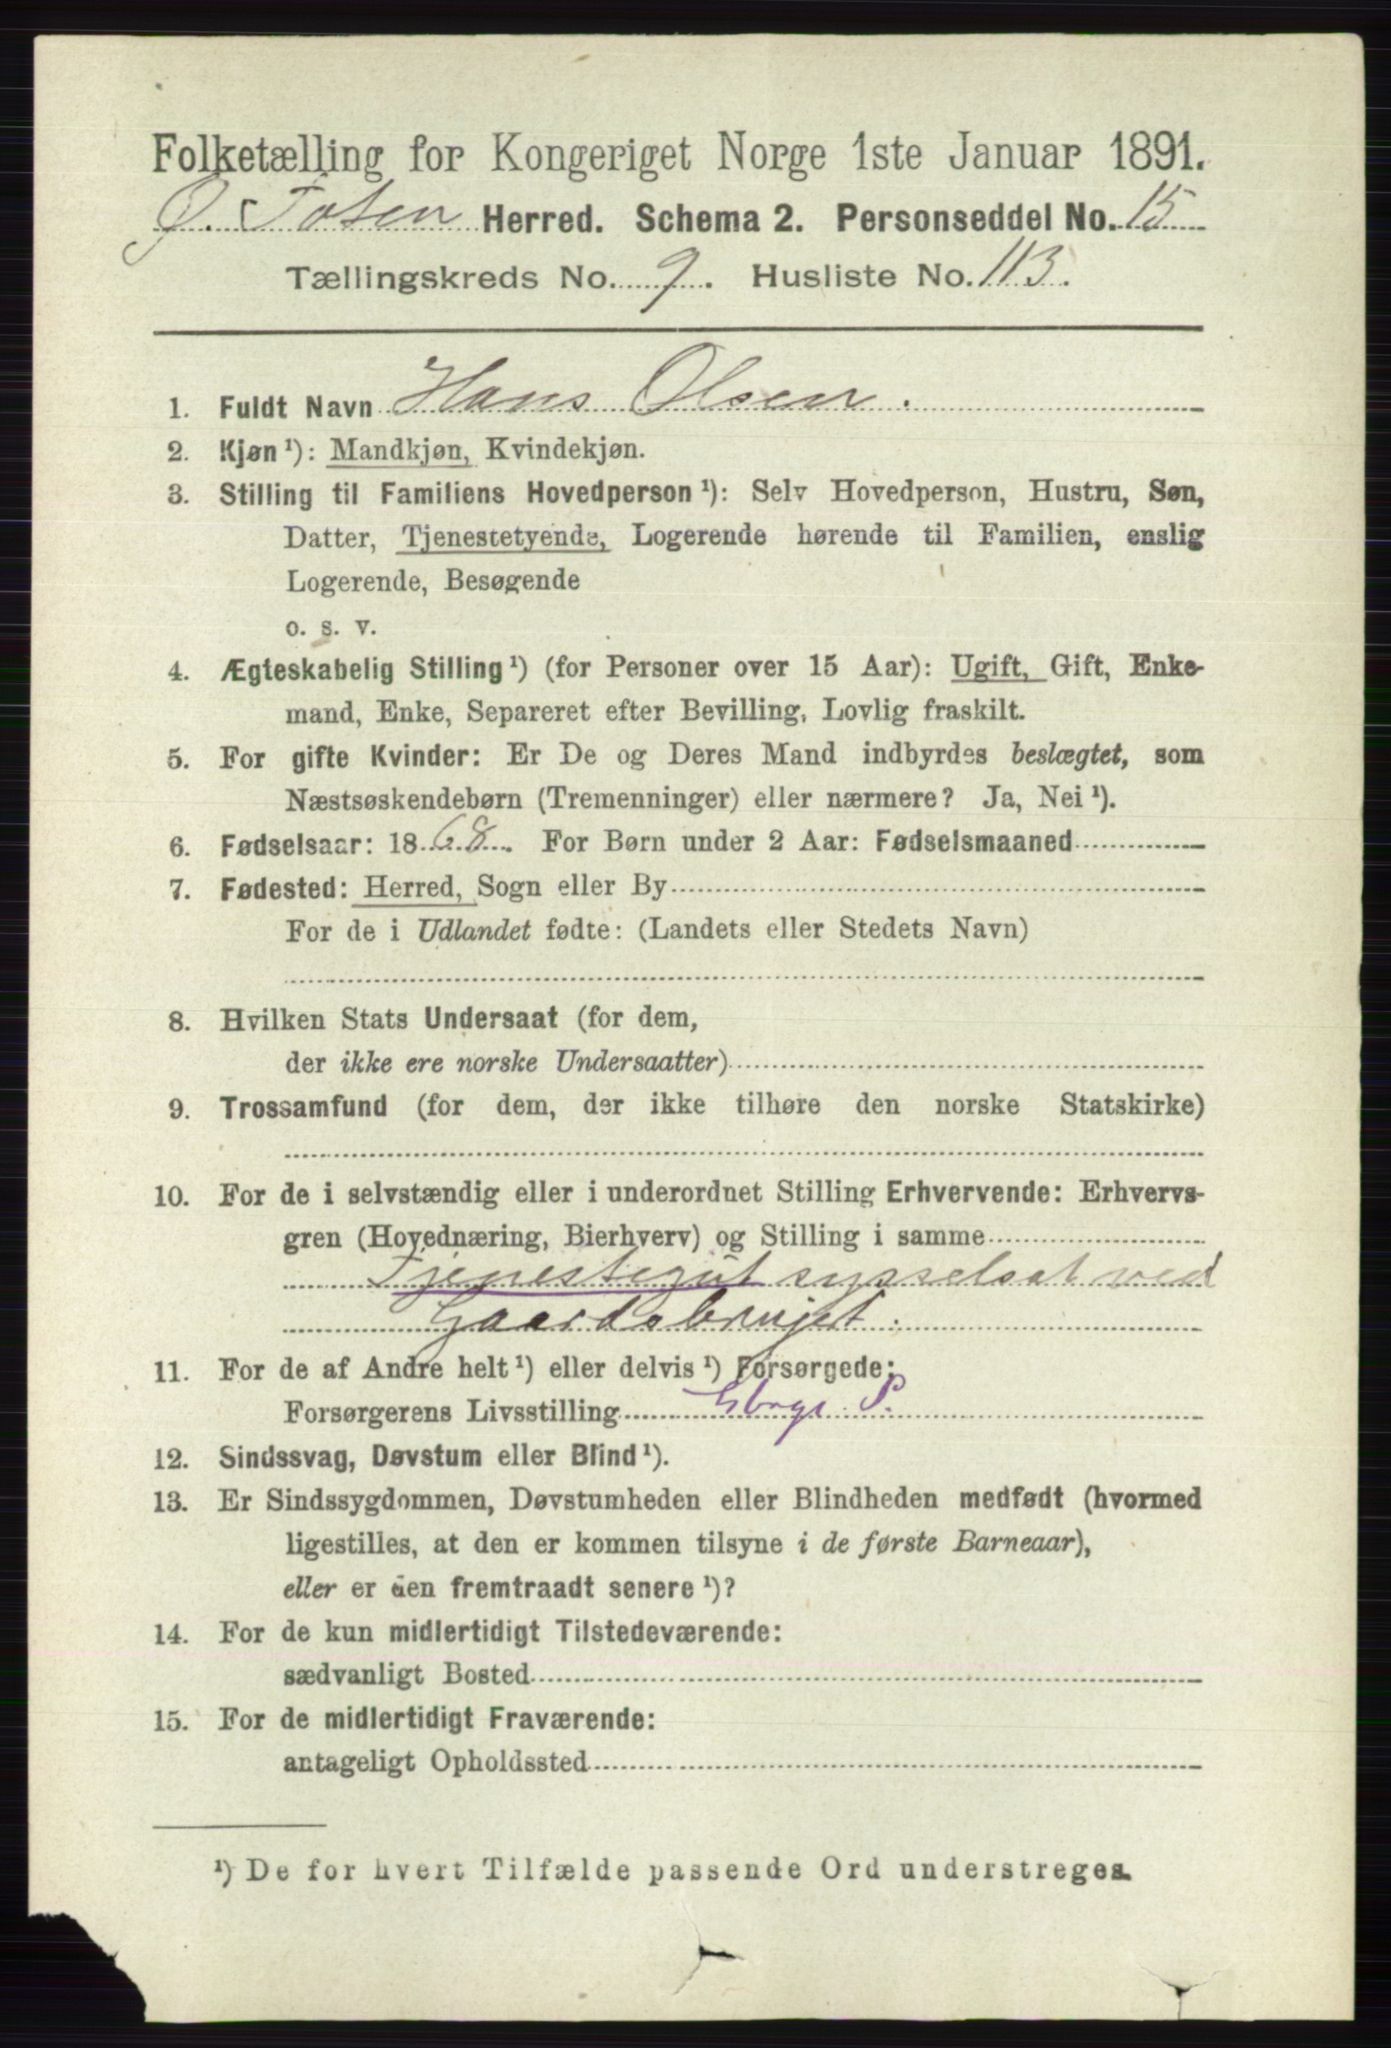 Folketælling for Kongeriget Norge 1ste Januar 1891.
Ø. Toten Herred. Schema 2. Personseddel No. 15
Tællingskreds No. 9. Husliste No. 113.
1. Fuldt Navn Hans Olsen.
2. Kjøn ¹): Mandkjøn, Kvindekjøn.
3. Stilling til Familiens Hovedperson ¹): Selv Hovedperson, Hustru, Søn,
Datter, Tjenestetyende, Logerende hørende til Familien, enslig
Logerende, Besøgende
o. s. v.
4. Ægteskabelig Stilling ¹) (for Personer over 15 Aar): Ugift, Gift, Enke-
mand, Enke, Separeret efter Bevilling, Lovlig fraskilt.
5. For gifte Kvinder: Er De og Deres Mand indbyrdes beslægtet, som
Næstsøskendebørn (Tremenninger) eller nærmere? Ja, Nei ¹).
6. Fødselsaar: 1868. For Børn under 2 Aar: Fødselsmaaned
7. Fødested: Herred, Sogn eller By
For de i Udlandet fødte: (Landets eller Stedets Navn)
8. Hvilken Stats Undersaat (for dem,
der ikke ere norske Undersaatter)
9. Trossamfund (for dem, der ikke tilhøre den norske Statskirke)
10. For de i selvstændig eller i underordnet Stilling Erhvervende: Erhvervs-
gren (Hovednæring, Bierhverv) og Stilling i samme
Tjenestegut sysselsat ved
Gaardsbruget.
11. For de af Andre helt ¹) eller delvis ¹) Forsørgede:
Forsørgerens Livsstilling
12. Sindssvag, Døvstum eller Blind ¹).
13. Er Sindssygdommen, Døvstumheden eller Blindheden medfødt (hvormed
ligestilles, at den er kommen tilsyne i de første Barneaar),
eller er den fremtraadt senere ¹)?
14. For de kun midlertidigt Tilstedeværende:
sædvanligt Bosted
15. For de midlertidigt Fraværende:
antageligt Opholdssted
¹) De for hvert Tilfælde passende Ord understreges.